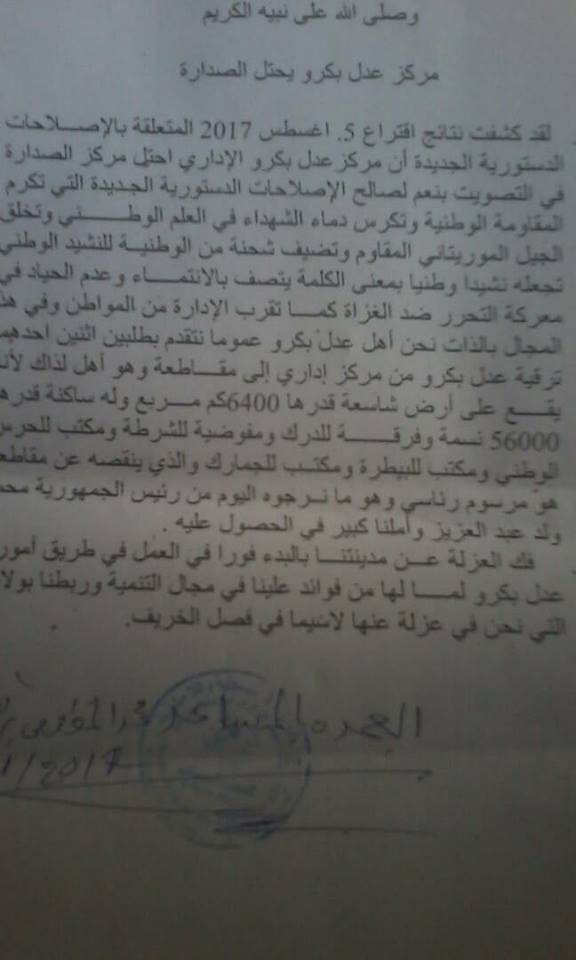 وصلى الله على نبيه الكريم
مركز عدل بكرو يحتل الصدارة
لقد كشفت نتائج اقتراع 5. اغسطس 2017 المتعلقة بالإصلاحات
الدستورية الجديدة أن مركز عدل بكرو الإداري احتل مركز الصدارة
في التصويت بنعم لصالح الإصلاحات الدستورية الجديدة التي تكرم
المقاومة الوطنية وتكرس دماء الشهداء في العلم الوطني وتخلق
الجيل الموريتاني المقاوم وتضيف شحنة من الوطنية للنشيد الوطني
تجعله نشيدا وطنيا بمعنى الكلمة يتصف بالانتماء وعدم الحياد في
معركة التحرر ضد الغزاة كما تقرب الإدارة من المواطن وفي هذ
المجال بالذات نحن أهل عدل بكرو عموما نتقدم بطلبين اثنين احدهم
ترقية عدل بكرو من مركز إداري إلى مقاطعة وهو أهل لذاك لأنه
يقع على أرض شاسعة قدرها 6400كم مربع وله ساكنة قدرها
56000 نسمة وفرقة للدرك ومفوضية للشرطة ومكتب للحرس
الوطني ومكتب للبيطرة ومكتب للجمارك والذي ينقصه عن مقاطع
هو مرسوم رئاسي وهو ما نرجوه اليوم من رئيس الجمهورية محم
ولد عبد العزيز وأملنا كبير في الحصول عليه .
فك العزلة عن مدينتنا بالبدء فورا في العمل في طريق أمور
عدل بكرو لما لها من فوائد علينا في مجال التنمية وربطنا بولا
التي نحن في عزلة عنها لاسيما في فصل الخريف.
العمدة المساعد
1/2017